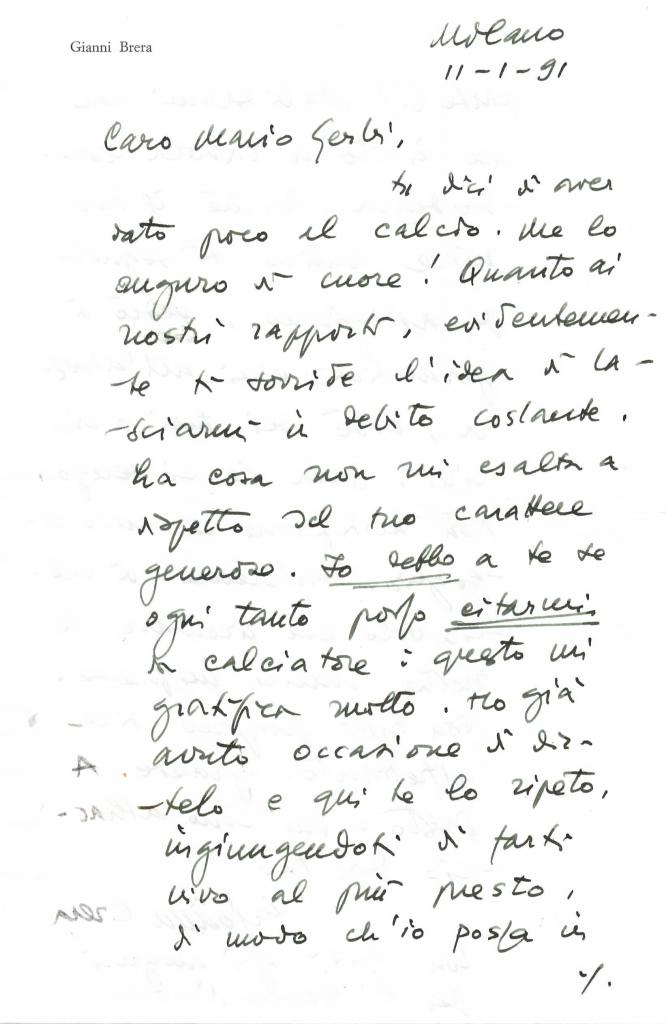 Gianni Brera
Milano
11-1-91
Caro Mario Gerbi,
tu dici di aver
dato poco il calcio. Me lo
auguro di cuore! Quanto ai
nostri rapporti, evidentemen-
-te ti sorride l'idea di la-
-sciarmi in debito costante.
La cosa non mi esalta a
dispetto del tuo carattere
generoso. Io debbo a te se
ogni tanto posso citarmi
da calciatore: questo mi
gratifica molto. Ho già
avuto occasione di dir-
-telo e qui te lo ripeto,
ingiungendoti di farti
vivo al più presto,
di modo ch'io possa in
./.